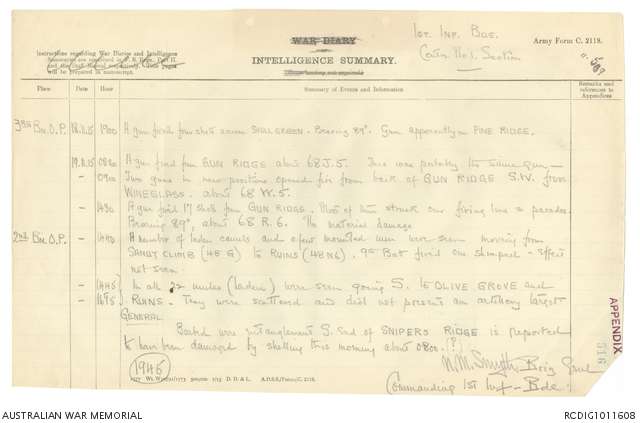 WAR DIARY
INTELLIGENCE SUMMARY.
1st. Inf. Bde.
Army Form C. 2118.
Instructions regarding War Diaries and Intelligence
Summaries are contained in F. S. Regs., Part II.
and the Staff Manual respectively. Title pages
will be prepared in manuscript.
Place Date Hour Summary of Events and Information Remarks and references to Appendices
3rd Bn. O.P. 18.11.15 1900 A gun fired four shells across SHELL GREEN. Bearing 89°. Gun apparently on PINE RIDGE.
19.11.15 A gun fired from GUN RIDGE about 68 J. 5. This was probably the same gun -
- 0900 Two guns in new positions opened fire from back of GUN RIDGE S.W. from
WIREGLASS. about 68 W. 5.
- 1430 A gun fired 17 shells from GUN RIDGE. Most of them struck our firing line & parados.
Bearing 89°, about 68 R. 6. No material damage
2nd Bn. O.P. - 1440 A number of laden camels and a few mounted men were seen moving from
SANDY CLIMB to RUINS. 9th Bat fired one shrapnel - effect
not seen
- 1445 In all 22 mules (laden) were seen going S. to OLIVE GROVE and
- 1675 RUINS. They were scattered and did not present an artillery target
GENERAL.
Barbed wire entanglement S. End of SNIPERS RIDGE is reported
to have been damaged by shelling this morning about 0800. (?)
N. M. Smyth Brig Genl
Commanding 1st Inf - Bde.
1945
A.D.S.S./Forms/C. 2118.
APPENDIX
516
AUSTRALIAN WAR MEMORIAL
RCDIG1011608